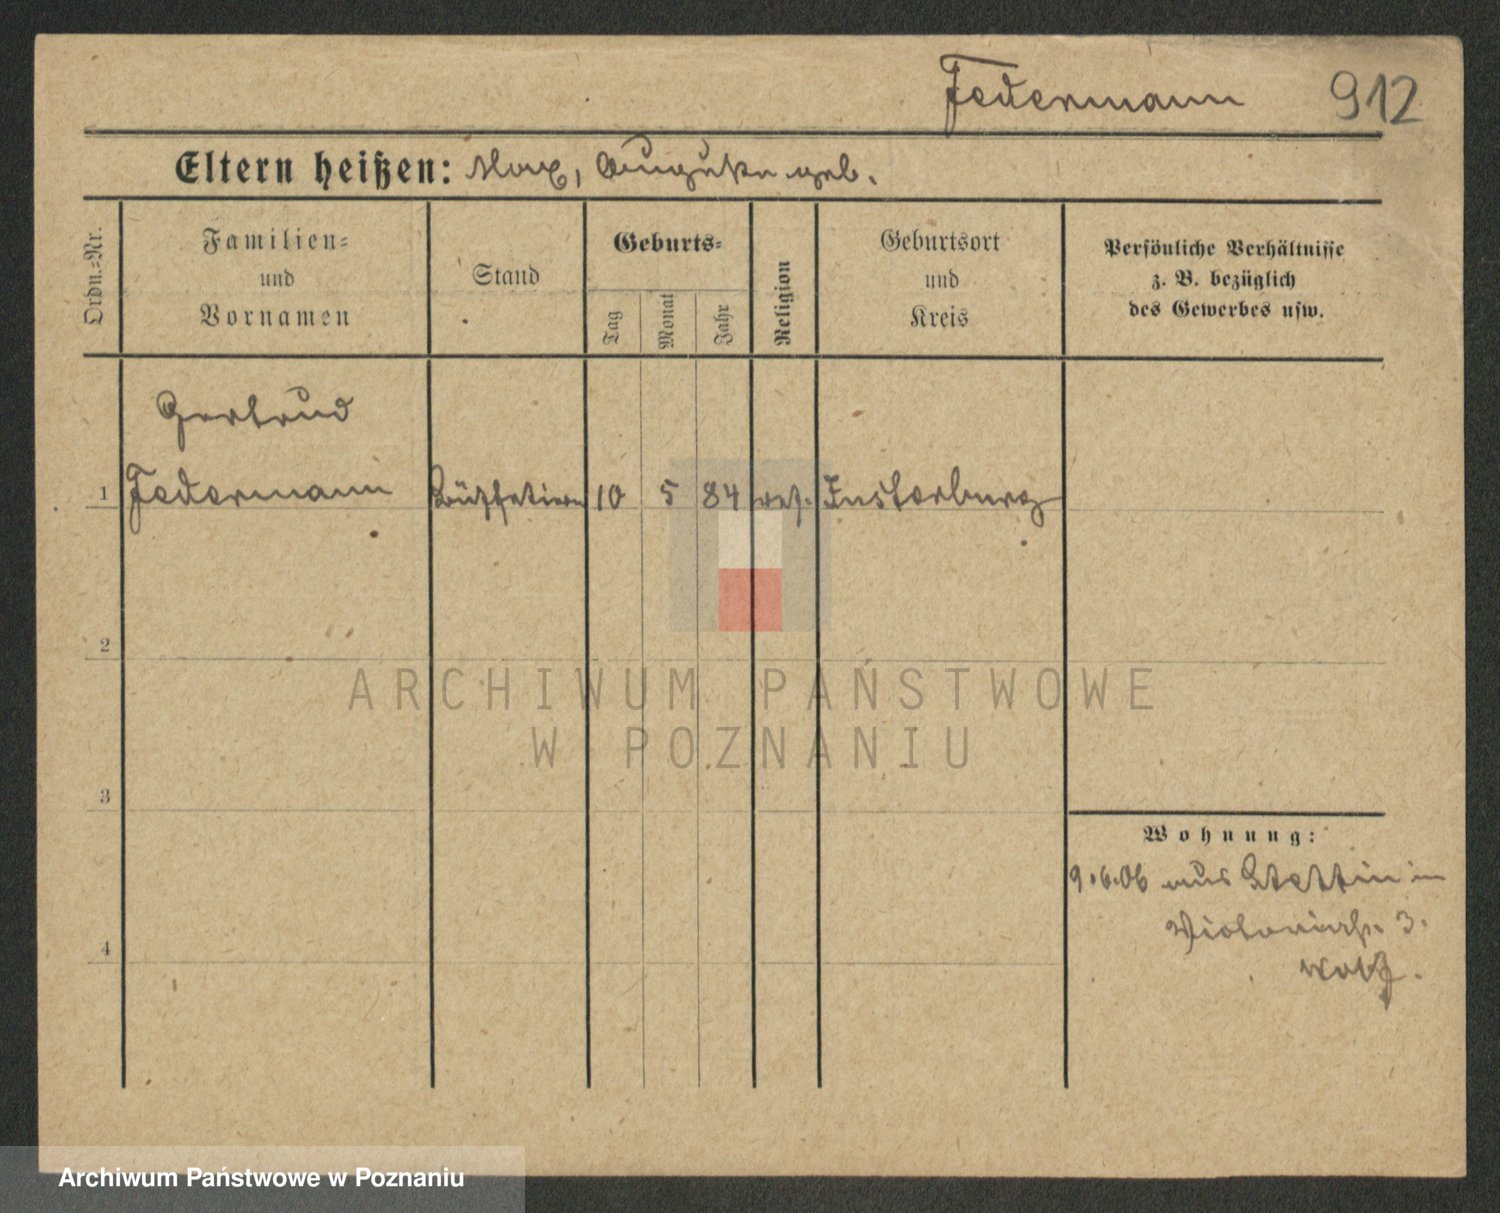 Federmann 912
Eltern heißen: Max, Auguste geb.
Ordn.-Nr.
Familien-
und
Vornamen
Stand
Geburts-
Tag
Monat
Jahr
Religion
Geburtsort
und
Kreis
Persönliche Verhältnisse
z. B. bezüglich
des Gewerbes usw.
Gertrud
1 Federmann 10 5 84 Insterburg
2
3
4
Wohnung:
9.6.06 aus Stettin in
Victoriastr. 3.
ARCHIWUM PAŃSTWOWE
W POZNANIU
Archiwum Państwowe w Poznaniu